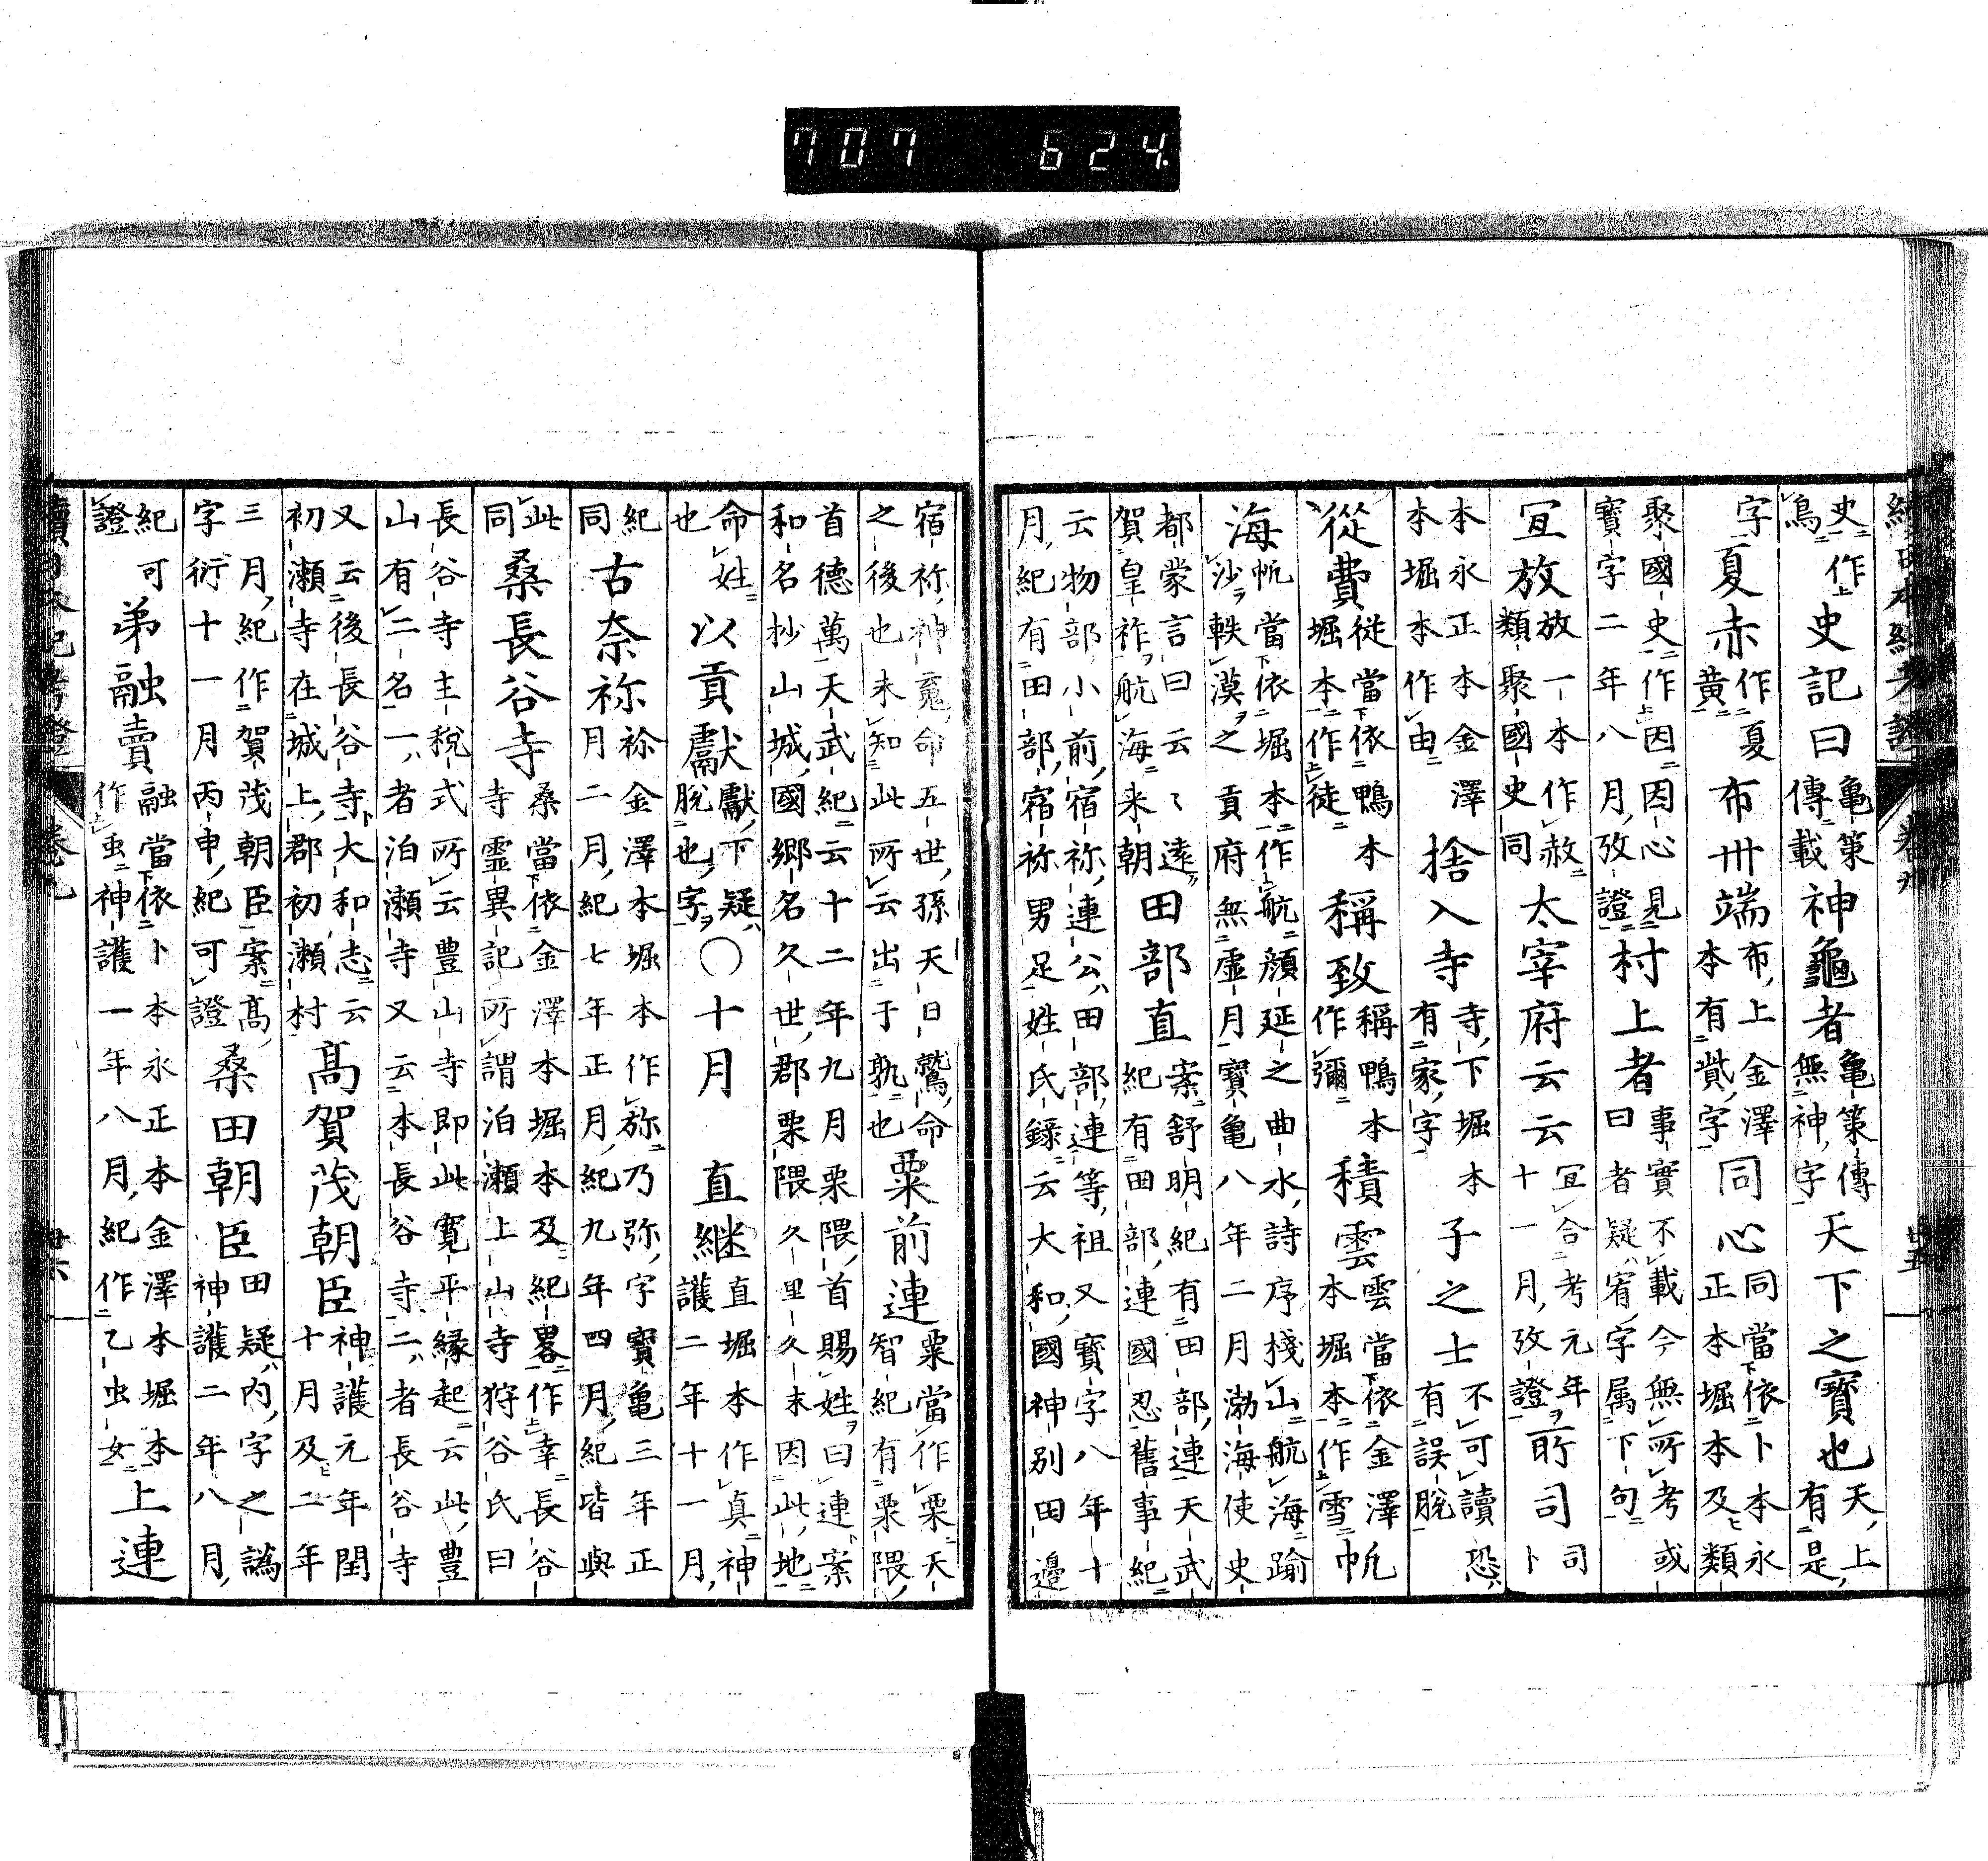 707 624.
續日本紀考證 卷九
史作上 史記曰 龜策
鳥 傳載 神龜者 龜策傳
無神字 天下之寶也 天上
有是
字 夏赤 作夏
黄 布卅端 布上金澤
本有貲字 同心 同當依卜本永
正本堀本及類
聚國史作因因心見
寶字二年八月攷證 村上者 事實不載今無所考或
曰者疑宥字属下句
宜放 放一本作赦
類聚國史同 太宰府云云 宜合考元年
十一月攷證 所司 司
卜
本永正本金澤
本堀本作由 捨入寺 寺下堀本
有家字 子之士 不可讀恐
有誤脱
從費 從當依鴨本
堀本作徒 稱致 稱鴨本
作彌 積雲 雲當依金澤
本堀本作雪 帆
海 帆當依堀本作航顔延之曲水詩序棧山航海踰
沙軼漠之貢府無虛月寶龜八年二月渤海使史
都蒙言曰云〻遠
賀皇祚航海来朝 田部直 案舒明紀有田部連天武
紀有田部連國忍舊事紀
云物部小前宿祢連公田部連等祖又寶字八年十
月紀有田部宿祢男足姓氏録云大和國神別田邊
宿祢神䰟命五世孫天日鷲命
之後也未知此所云出于孰也 粟前連 粟當作栗天
智紀有栗隈
首德萬天武紀云十二年九月栗隈首賜姓曰連案
和名抄山城國郷名久世郡栗隈久里久末因此地
命姓
也 以貢獻 獻下疑
脱也字 〇十月 直継 直堀本作真神
護二年十一月
紀
同 古奈祢 祢金澤本堀本作弥乃弥字寶龜三年正
月二月紀七年正月紀九年四月紀皆與
此
同 桑長谷寺 桑當依金澤本堀本及紀畧作幸長谷
寺靈異記所謂泊瀬上山寺狩谷氏曰
長谷寺主税式所云豊山寺即此寛平縁起云此豊
山有二名一者泊瀬寺又云本長谷寺二者長谷寺
又云後長谷寺大和志云
初瀬寺在城上郡初瀬村 髙賀茂朝臣 神護元年閏
十月及二年
三月紀作賀茂朝臣案髙
字衍十一月丙申紀可證 桑田朝臣 田疑内字之譌
神護二年八月
紀可
證 弟融賣 融當依卜本永正本金澤本堀本
作䖝神護一年八月紀作乙虫女 上連
續日本紀考證 卷九